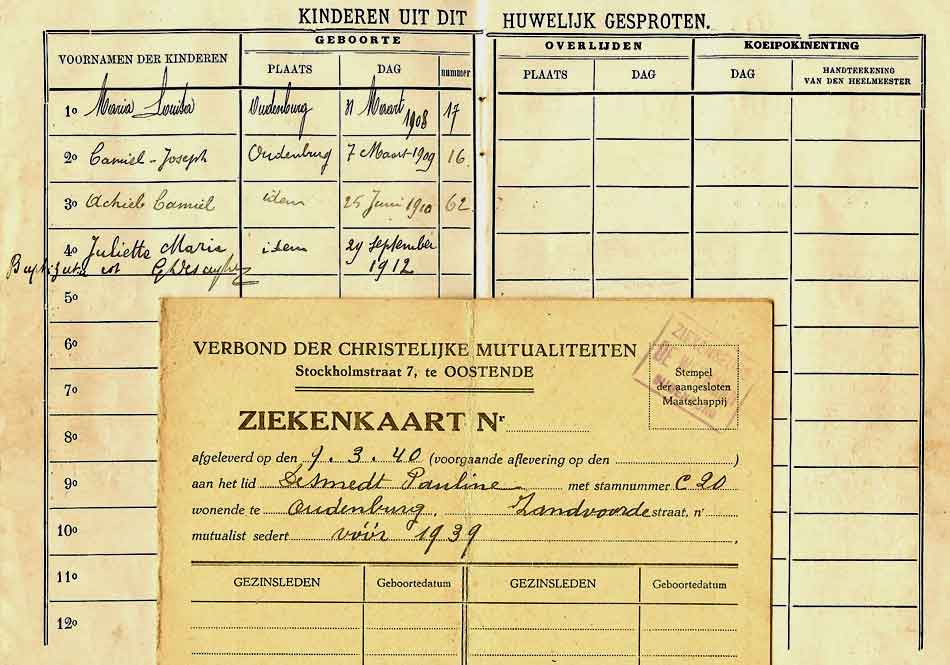 KINDEREN UIT DIT HUWELIJK GESPROTEN.
VOORNAMEN DER KINDEREN GEBOORTE OVERLIJDEN KOEIPOKINENTING
PLAATS DAG nummer PLAATS DAG DAG HANDTEEKENING VAN DEN HEELMEESTER
1o Maria Louisa Oudenburg 11 Maart 1908 17
2o Camiel-Joseph Oudenburg 7 Maart 1909 16
3o Achiel Camiel idem 25 Juni 1910 62
4o Juliette Maria idem 29 September 1912
5o
6o
7o
8o
9o
10o
11o
12o
VERBOND DER CHRISTELIJKE MUTUALITEITEN
Stockholmstraat 7, te OOSTENDE
Stempel
der aangesloten
Maatschappij
ZIEKENKAART Nr
afgeleverd op den 9.3.40 (voorgaande aflevering op den )
aan het lid Desmedt Pauline met stamnummer C 20
wonende te Oudenburg. Zandvoorde straat, nr
mutualist sedert vóór 1939.
GEZINSLEDEN Geboortedatum GEZINSLEDEN Geboortedatum